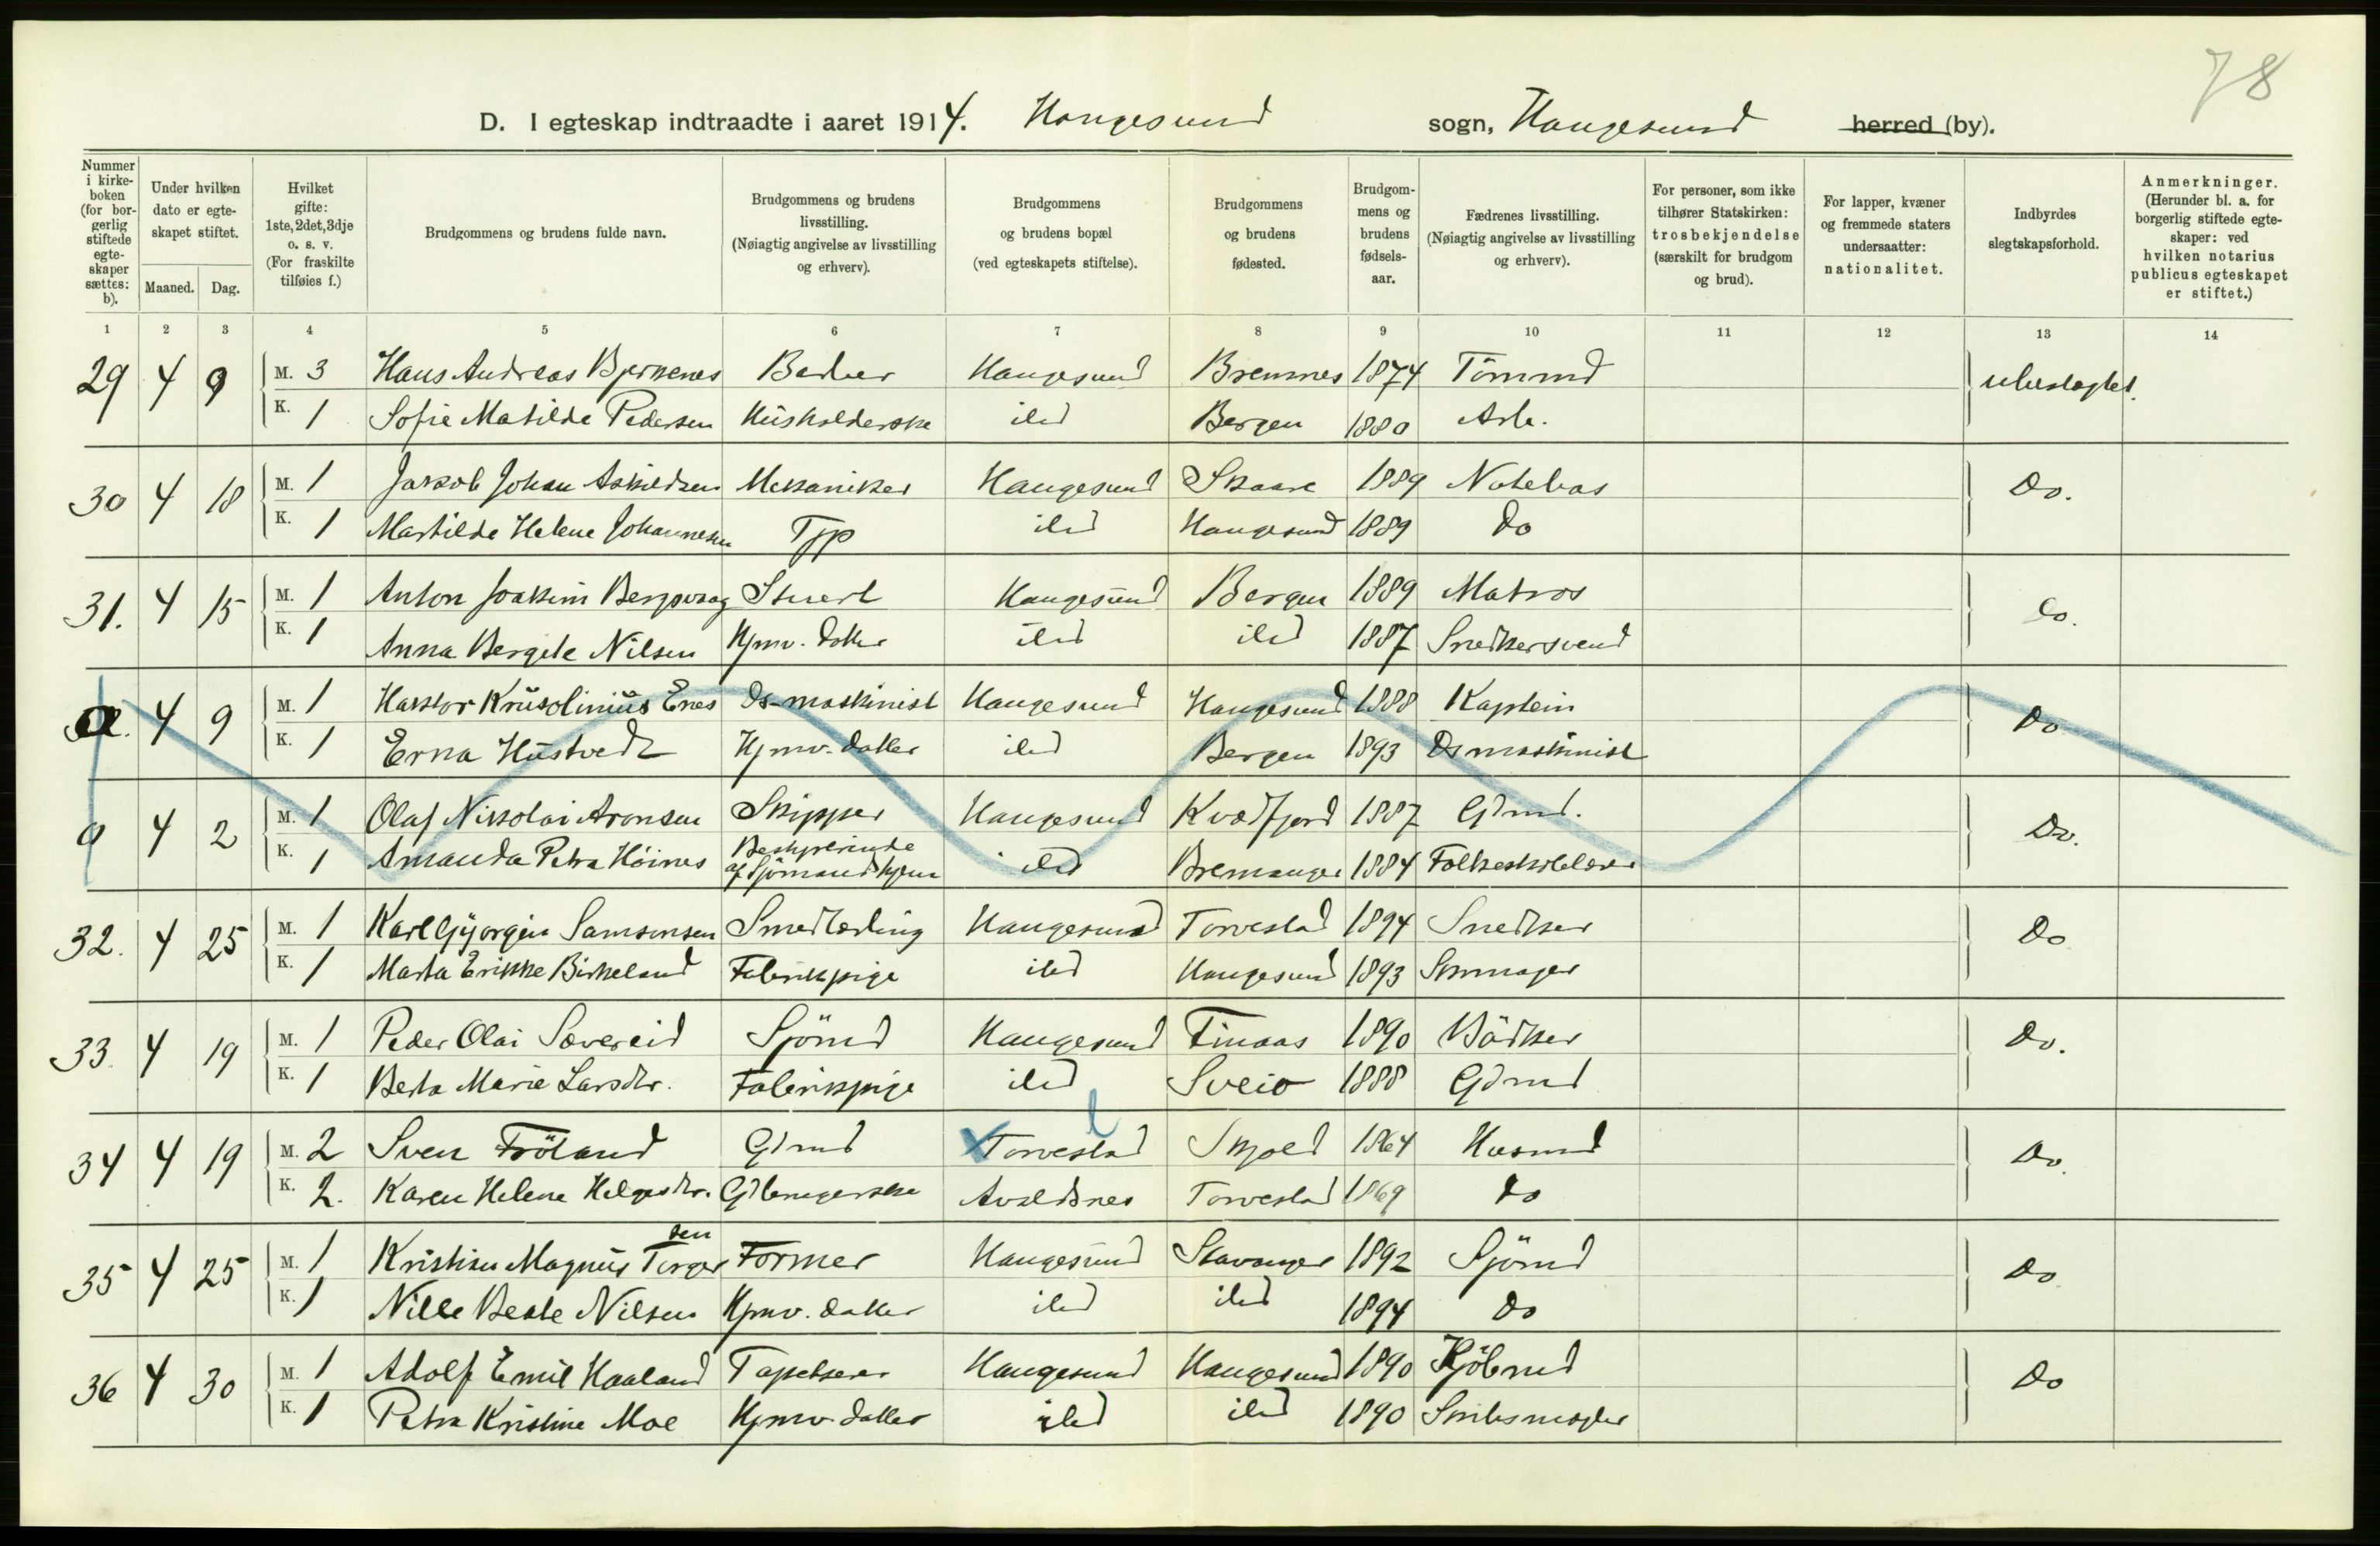 78
D. I egteskap indtraadte i aaret 1914. Haugesund sogn, Haugesund herred (by).
Nummer i kirkeboken (for borgerlig stiftede egteskaper sættes: b).
Under hvilken dato er egteskapet stiftet.
Maaned. Dag.
Hvilket gifte: 1ste, 2det, 3dje o. s. v. (For fraskilte tilføies f.)
Brudgommens og brudens fulde navn.
Brudgommens og brudens livsstilling. (Nøiagtig angivelse av livsstilling og erhverv).
Brudgommens og brudens bopæl (ved egteskapets stiftelse).
Brudgommens og brudens fødested.
Brudgommens og brudens fødselsaar.
Fædrenes livsstilling. (Nøiagtig angivelse av livsstilling og erhverv).
For personer, som ikke tilhører Statskirken: trosbekjendelse (særskilt for brudgom og brud).
For lapper, kvæner og fremmede staters undersaatter: nationalitet.
Indbyrdes slegtskapsforhold.
Anmerkninger. (Herunder bl. a. for borgerlig stiftede egteskaper: ved hvilken notarius publicus egteskapet er stiftet.)
1 2 3 4 5 6 7 8 9 10 11 12 13 14
29 4 9 M. 3 Hans Andreas Bjerkenes Barber Haugesund Bremnes 1874 Tömmd ubeslagtet.
K. 1 Sofie Matilde Pedersen Husholderske ibd Bergen 1880 Arb.
30 4 18 M. 1 Jakob Johan Askildsen Mekaniker Haugesund Skaare 1889 Notebas Do.
K. 1 Martilde Helene Johannesen Tjp ibd Haugesund 1889 do
31. 4 15 M. 1 Anton Joakim Bergsvaag Stuert Haugesund Bergen 1889 Matros do.
K. 1 Anna Bergete Nilsen Hjmv. datter ibd ibd 1887 Snedkersvend
a. 4 9 M. 1 Haktor Krusolinius Enes Ds-maskinist Haugesund Haugesund 1888 Kaptein Do
K. 1 Erna Hustvedt Hjmv. datter ibd Bergen 1893 Dsmaskinist
a 4 2 M. 1 Olaf Nikolai Aronsen Skipper Haugesund Kvædfjord 1887 Gdmd. Do.
K. 1 Amanda Petra Höines Bestyrerinde af Sjömandshjem ibd Bremanger 1884 Folkeskolelærer
32. 4 25 M. 1 Karl Gjörgin Samsonsen Smedlærling Haugesund Torvestad 1894 Snedker Do
K. 1 Marta Erikke Birkeland Fabrikpige ibd Haugesund 1893 Skomager
33. 4 19 M. 1 Peder Olai Sævereid Sjömd Haugesund Finaas 1890 Bödker Do.
K. 1 Berta Marie Larsdtr. Fabrikpige ibd Sveio 1888 Gdmd
34 4 19 M. 2 Sven Fröland Gdmd Torvestad Skjold 1864 Husmd Do.
K. 2. Karen Helene Helgesdtr. Gdbrugerske Avaldsnes Torvestad 1869 do
35 4 25 M. 1 Kristian Magnus Torgersen Former Haugesund Stavanger 1892 Sjömd Do
K. 1 Nille Beate Nilsen Hjmv. datter ibd ibd 1894 do
36 4 30 M. 1 Adolf Emil Haaland Tapetserer Haugesund Haugesund 1890 Kjöbmd Do
K. 1 Petra Kristine Moe Hjmv. datter ibd ibd 1890 Skibsmægler